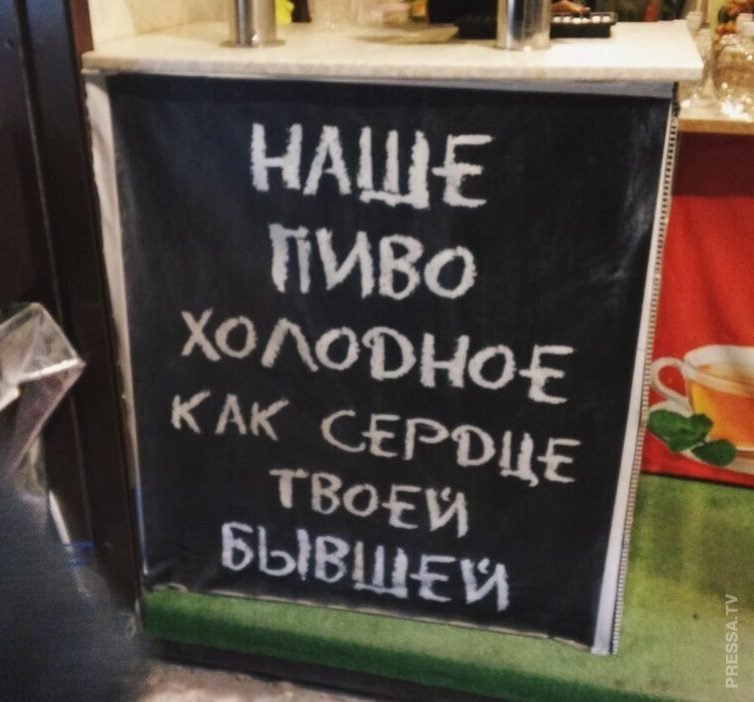 НАШЕ
ПИВО
ХОЛОДНОЕ
КАК СЕРДЦЕ
ТВОЕЙ
БЫВШЕЙ
PRESSA.TV